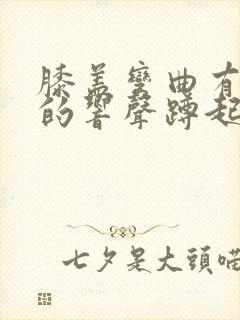 膝盖彎曲有
的響聲蹲起
七夕是大頭喵